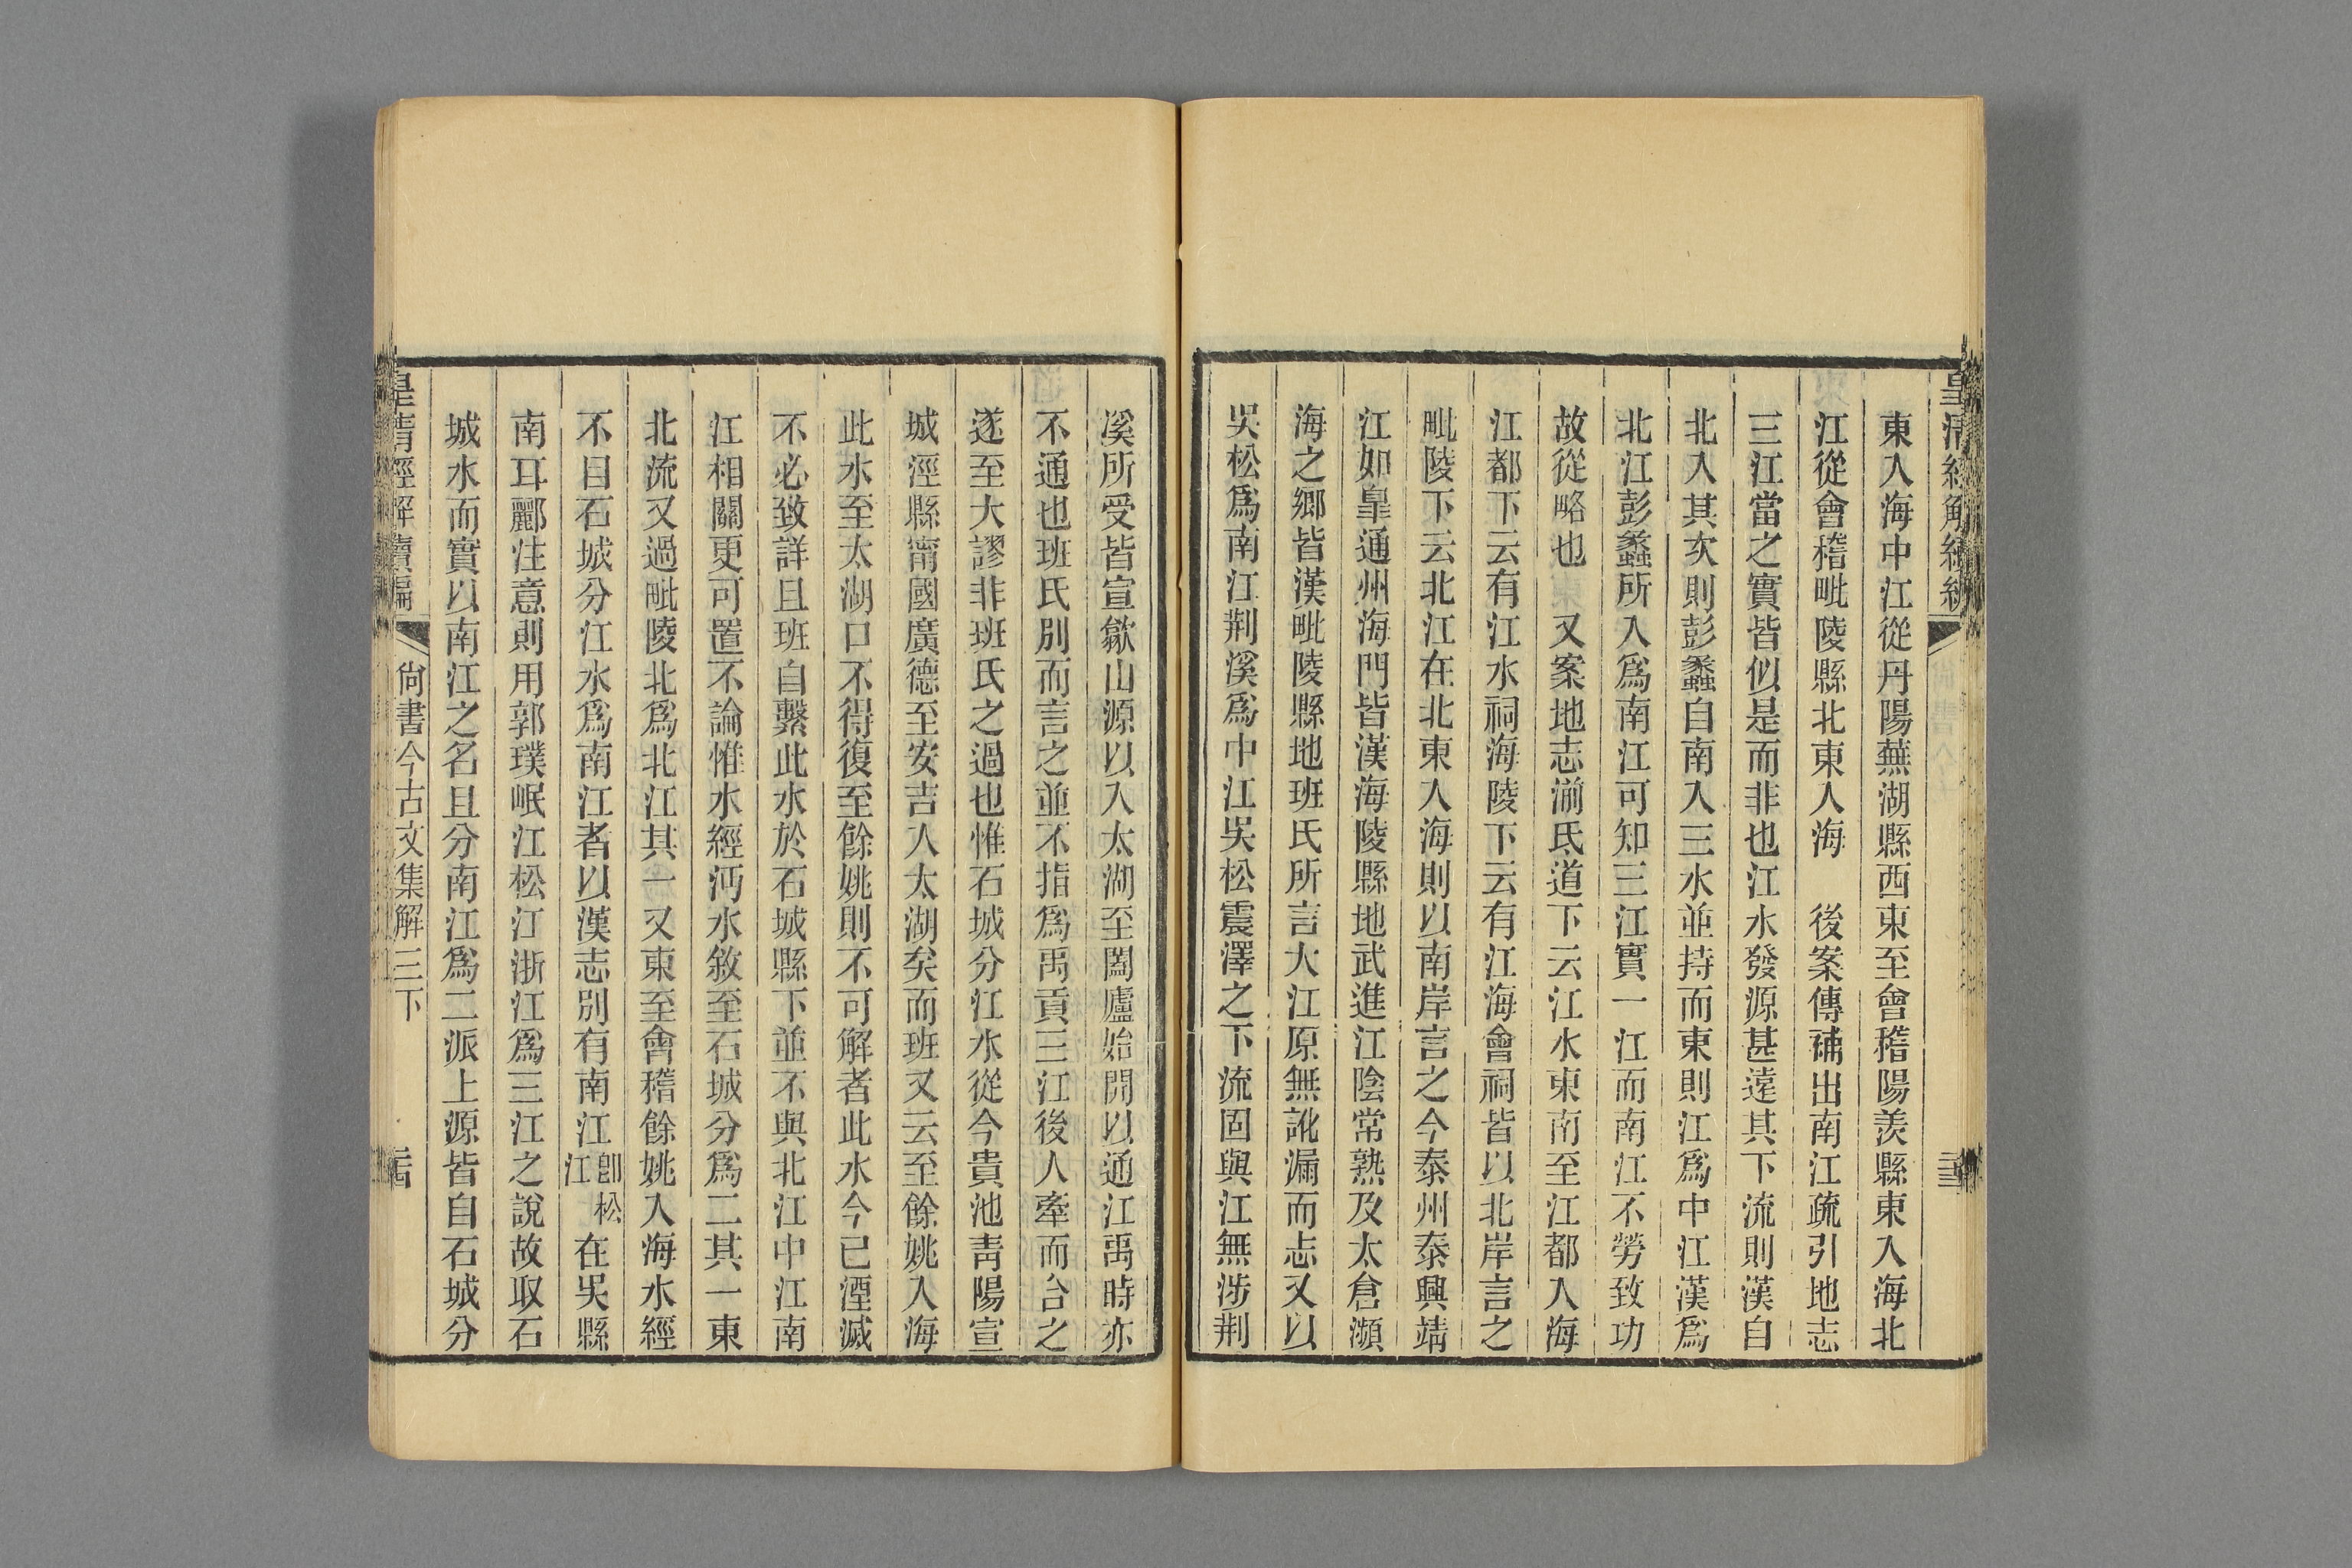 東入海中江從丹陽蕪湖縣西東至會稽陽羨縣東入海北
江從會稽毗陵縣北東入海　後案傳補出南江疏引地志
三江當之實皆似是而非也江水發源甚遠其下流則漢自
北入其次則彭蠡自南入三水並持而東則江爲中江漢爲
北江彭蠡所入爲南江可知三江實一江而南江不勞致功
故從略也　又案地志湔氐道下云江水東南至江都入海
江都下云有江水祠海陵下云有江海會祠皆以北岸言之
毗陵下云北江在北東入海則以南岸言之今泰州泰興靖
江如皐通州海門皆漢海陵縣地武進江陰常熟及太倉瀕
海之鄉皆漢毗陵縣地班氏所言大江原無訛漏而志又以
吳松爲南江荆溪爲中江吳松震澤之下流固與江無涉荆
溪所受皆宣歙山源以入太湖至闔廬始開以通江禹時亦
不通也班氏別而言之並不指爲禹貢三江後人牽而合之
遂至大謬非班氏之過也惟石城分江水從今貴池青陽宣
城涇縣甯國廣德至安吉入太湖矣而班又云至餘姚入海
此水至太湖口不得復至餘姚則不可解者此水今已湮滅
不必致詳且班自繫此水於石城縣下並不與北江中江南
江相關更可置不論惟水經沔水敘至石城分爲二其一東
北流又過毗陵北爲北江其一又東至會稽餘姚入海水經
不目石城分江水爲南江者以漢志別有南江卽松江在吳縣
南耳酈注意則用郭璞岷江松江浙江爲三江之說故取石
城水而實以南江之名且分南江爲二派上源皆自石城分
皇清經解續編　尙書今古文集解三下